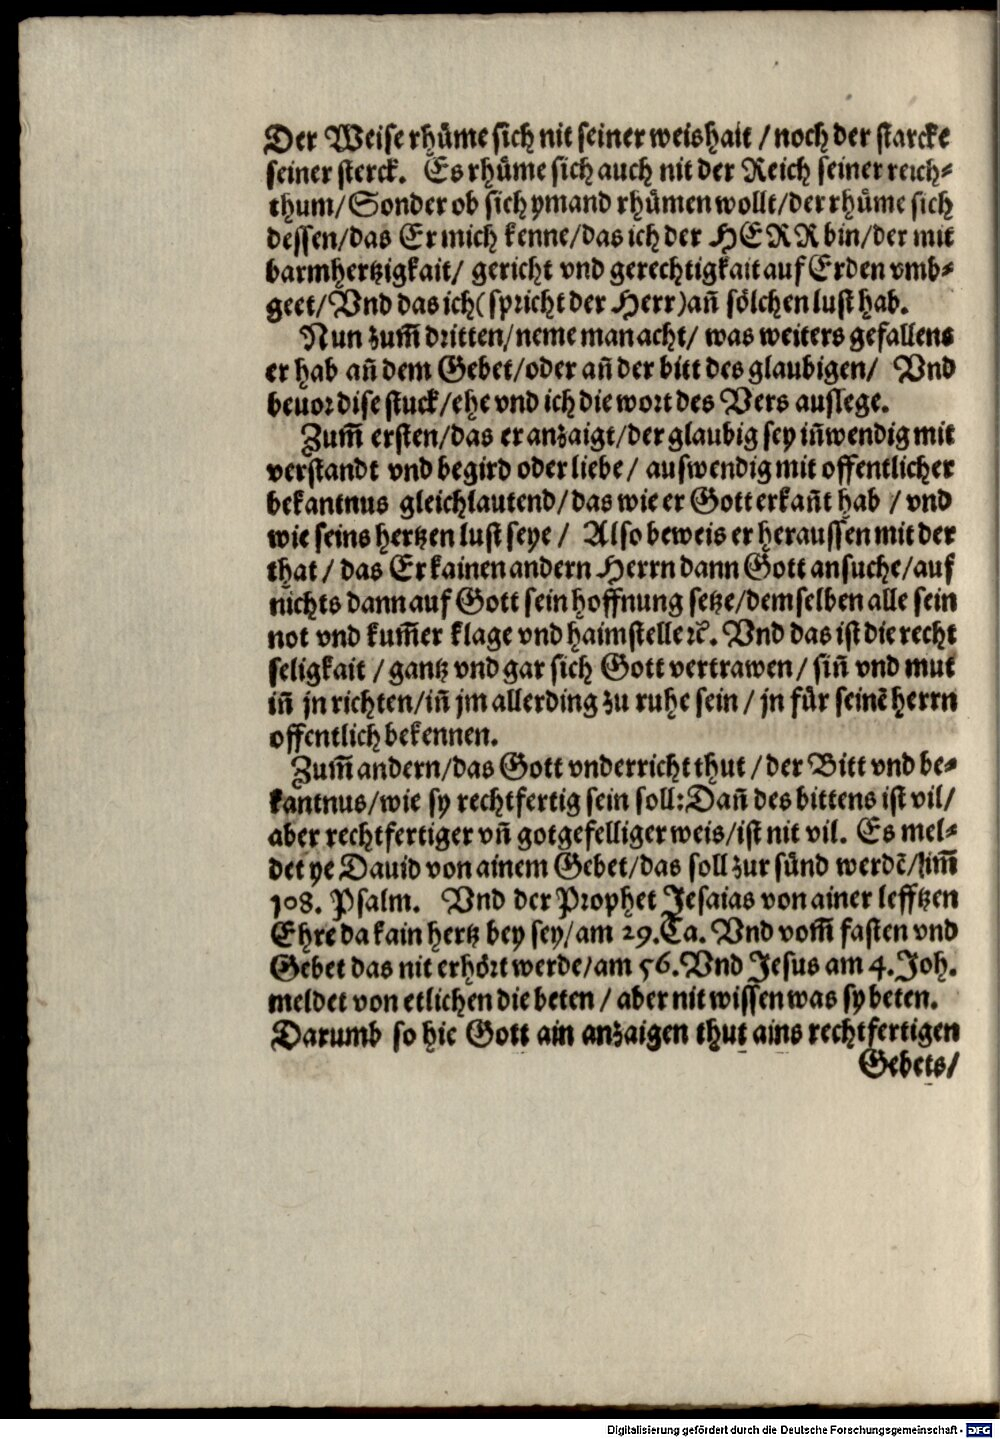 Der Weise rhuͤme sich nit seiner weishait / noch der starcke
seiner sterck. Es rhuͤme sich auch nit der Reich seiner reich⸗
thum/ Sonder ob sich ymand rhuͤmen wollt/der rhuͤme sich
dessen/das Er mich kenne/das ich der HERR bin/der mit
barmhertzigkait/ gericht vnd gerechtigkait auf Erden vmb⸗
geet/Vnd das ich (spricht der Herr) an̄ soͤlchen lust hab.
Nun zum̄ dritten/neme man acht/ was weiters gefallens
er hab an̄ dem Gebet/oder an̄ der bitt des glaubigen/ Vnd
beuor dise stuck/ehe vnd ich die wort des Vers auslege.
Zum̄ ersten/das er anzaigt/der glaubig sey in̄wendig mit
verstandt vnd begird oder liebe/ auswendig mit offentlicher
bekantnus gleichlautend/das wie er Gott erkan̄t hab / vnd
wie seins hertzen lust seye / Also beweis er heraussen mit der
that / das Er kainen andern Herrn dann Gott ansuche/auf
nichts dann auf Gott sein hoffnung setze/demselben alle sein
not vnd kum̄er klage vnd haimstelle ꝛc̄. Vnd das ist die recht
seligkait / gantz vnd gar sich Gott vertrawen / sin̄ vnd mut
in̄ jn richten/in̄ jm allerding zu ruhe sein / jn fuͤr seinē herrn
offentlich bekennen.
Zum̄ andern/das Gott vnderricht thut / der Bitt vnd be⸗
kantnus/wie sy rechtfertig sein soll: Dan̄ des bittens ist vil/
aber rechtfertiger vn̄ gotgefelliger weis/ist nit vil. Es mel⸗
det ye Dauid von ainem Gebet/das soll zur suͤnd werdē/im̄
108. Psalm. Vnd der Prophet Jesaias von ainer lefftzen
Ehre da kain hertz bey sey/am 29. Ca. Vnd vom̄ fasten vnd
Gebet das nit erhoͤrt werde/am 56. Vnd Jesus am 4. Joh.
meldet von etlichen die beten / aber nit wissen was sy beten.
Darumb so hie Gott ain anzaigen thut ains rechtfertigen
Gebets/
Digitalisierung gefördert durch die Deutsche Forschungsgemeinschaft - DFG